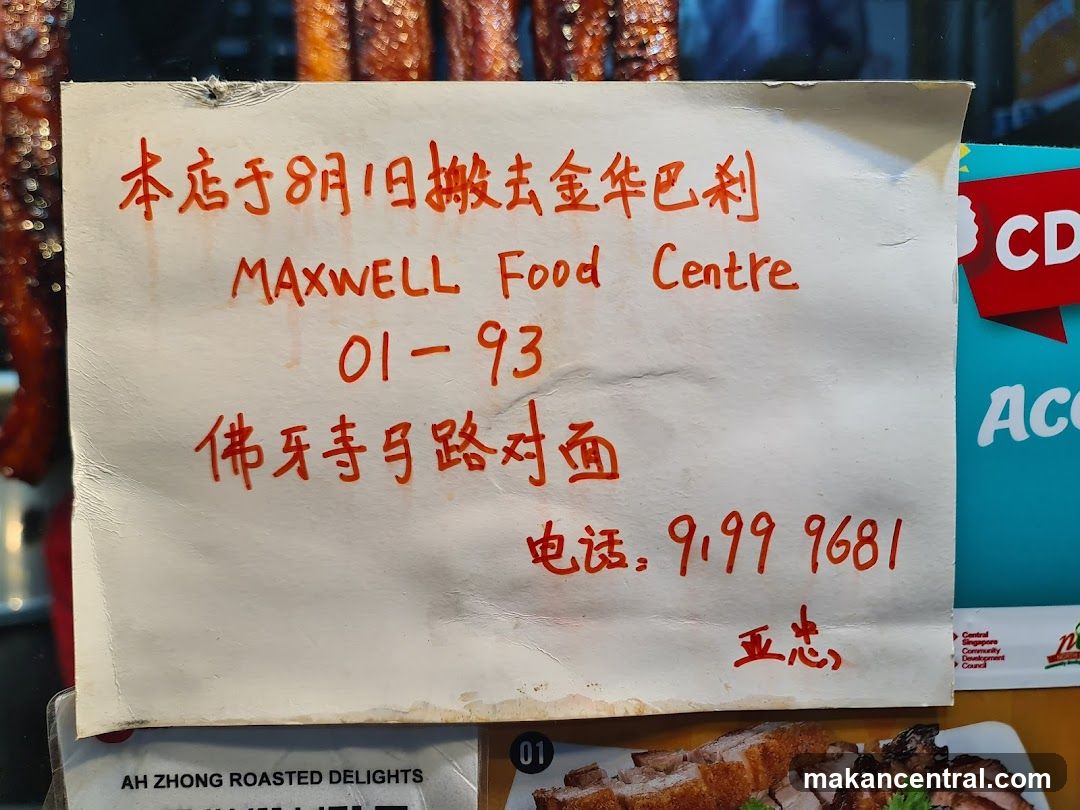 本店于8月1日搬去金华巴刹
MAXWELL Food Centre
01-93
佛牙寺马路对面
电话: 9199 9681
亚忠
CD
Acc
Central
Singapore
Community
Development
Council
01
AH ZHONG ROASTED DELIGHTS
makancentral.com